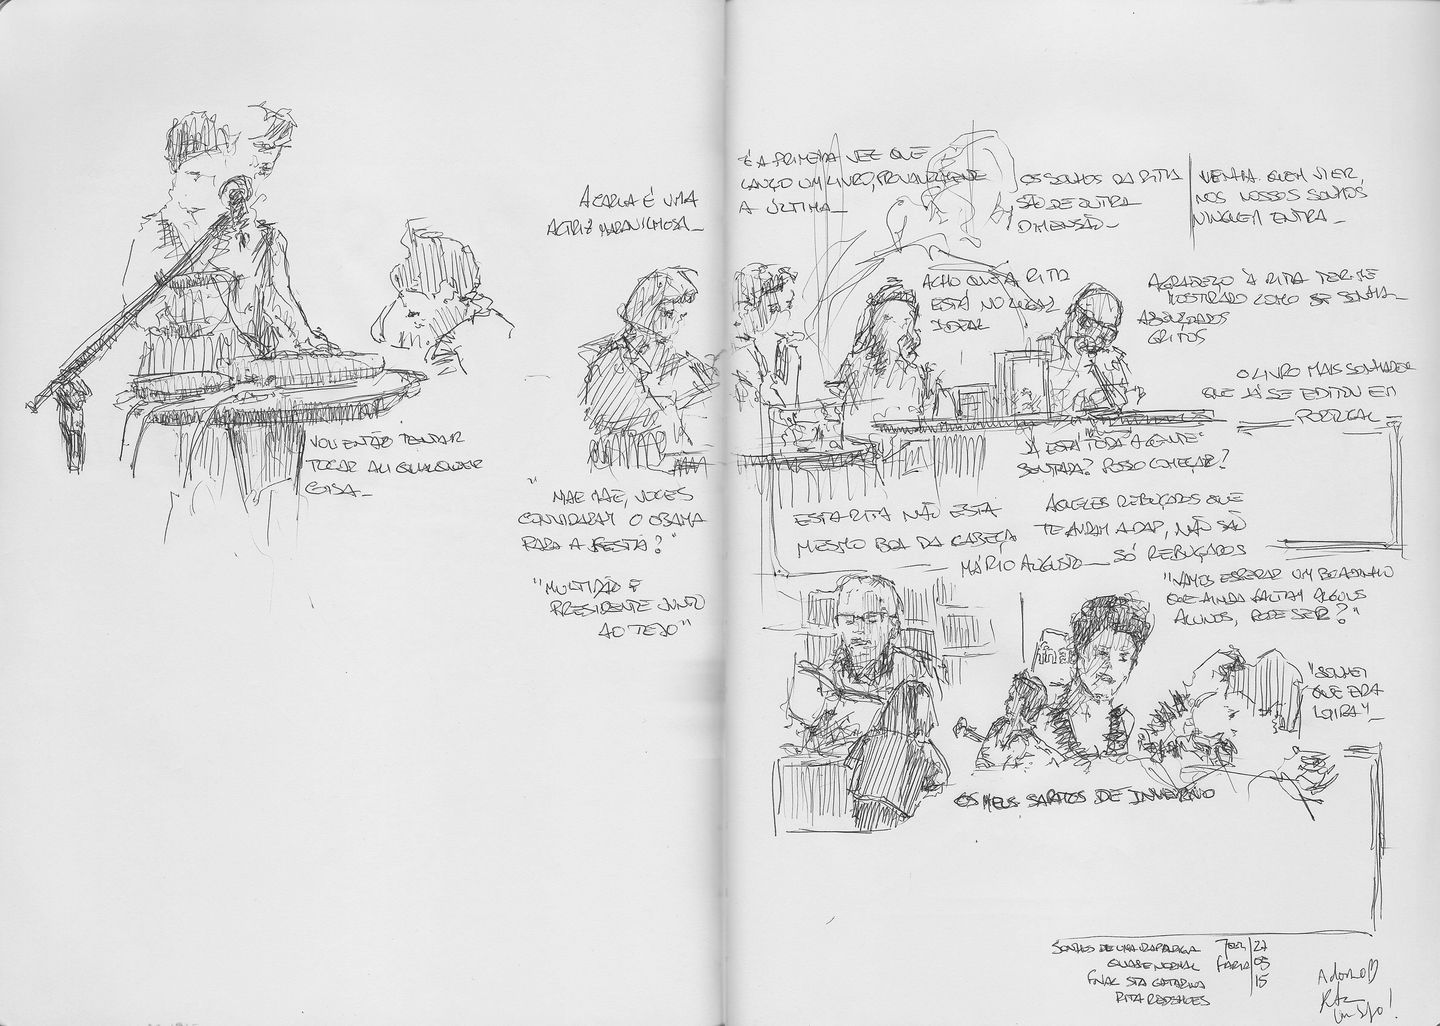 A CARLA É UMA
ACTRIZ MARAVILHOSA_
VOU ENTÃO TENTAR
TOCAR ALI QUALQUER
COISA_
"MÃE MÃE, VOCÊS
CONVIDARAM O OBAMA
PARA A FESTA?"
"MULTIDÃO E
PRESIDENTE JUNTO
AO TEJO"
É A PRIMEIRA VEZ QUE
LANÇO UM LIVRO, PROVAVELMENTE
A ÚLTIMA_
OS SONHOS DA RITA
SÃO DE OUTRA
DIMENSÃO_
VENHA QUEM VIER,
NOS NOSSOS SONHOS
NINGUÉM ENTRA_
ACHO QUE A RITA
ESTÁ NO LUGAR
IDEAL
AGRADEÇO À RITA TER-ME
MOSTRADO COMO SE SONHA_
ABRAÇADOS
GRITOS
O LIVRO MAIS SONHADOR
QUE JÁ SE EDITOU EM
PORTUGAL_
JÁ ESTÁ TODA A GENTE
SENTADA? POSSO COMEÇAR?
ESTA RITA NÃO ESTÁ
MESMO BOA DA CABEÇA
MÁRIO AUGUSTO_
AQUELES REBUÇADOS QUE
TE ANDAM A DAR, NÃO SÃO
SÓ REBUÇADOS
"VAMOS ESPERAR UM BOCADINHO
QUE AINDA FALTAM ALGUNS
ALUNOS, PODE SER?"
fnac
"SONHEI
QUE ERA
LOIRA"_
OS MEUS SAPATOS DE INVERNO
SONHOS DE UMA RAPARIGA
QUASE NORMAL
FNAC STA CATARINA
RITA REDSHOES
FARIA
27
03
15